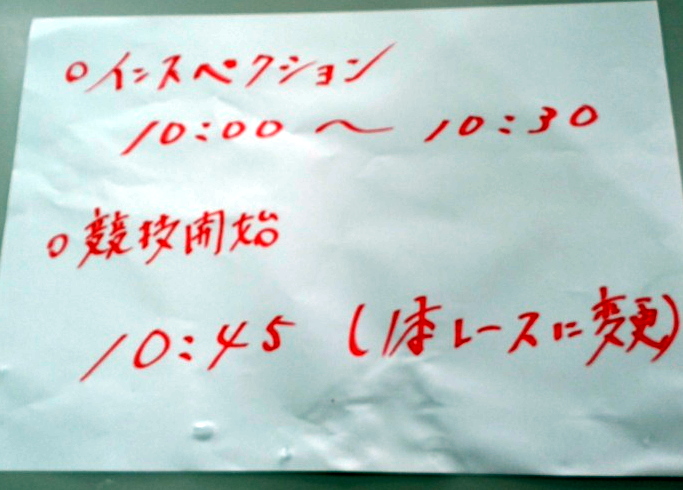 ○インスペクション
10:00 ～ 10:30
○競技開始
10:45 (1本レースに変更)